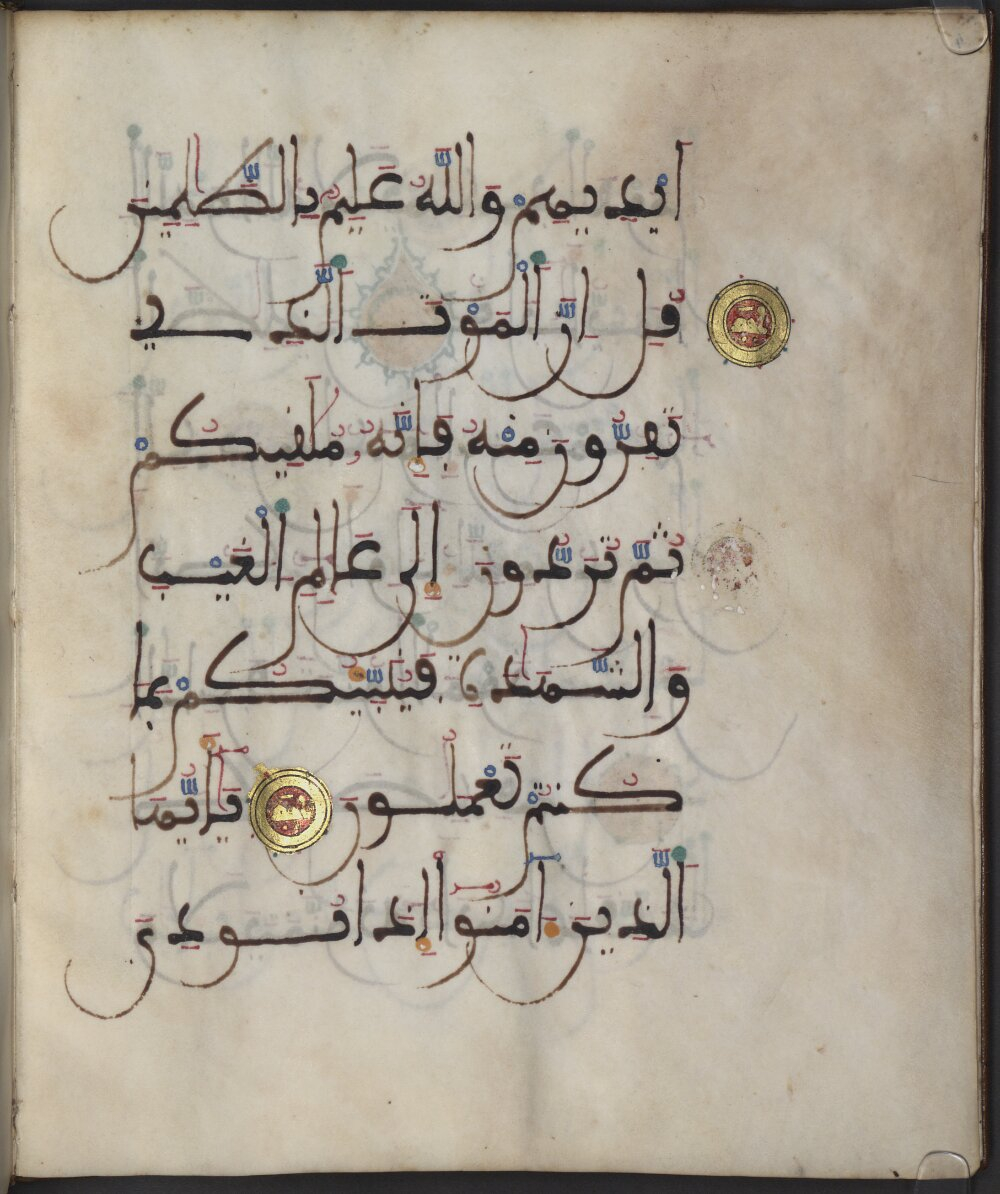 أَيْدِيهِمْ وَاللَّهُ عَلِيمٌ بِالظَّٰلِمِينَ
قُلْ إِنَّ الْمَوْتَ الَّذِي
تَفِرُّونَ مِنْهُ فَإِنَّهُ مُلَٰقِيكُمْ
ثُمَّ تُرَدُّونَ إِلَى عَالِمِ الْغَيْبِ
وَالشَّهَٰدَةِ فَيُنَبِّئُكُمْ بِمَا
كُنْتُمْ تَعْمَلُونَ يَٰأَيُّهَا
الَّذِينَ ءَامَنُوا إِذَا نُودِيَ